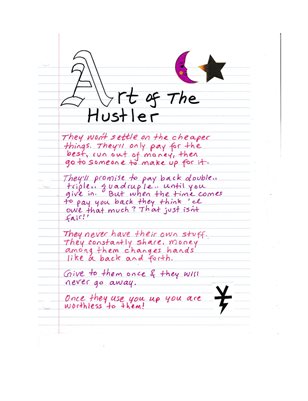 Art of The
Hustler
They won't settle on the cheaper
things. They'll only pay for the
best, run out of money, then
go to someone to make up for it.
They'll promise to pay back double..
triple.. quadruple.. until you
give in. But when the time comes
to pay you back they think "I
owe that much? That just isnt
fair!"
They never have their own stuff.
They constantly share. Money
among them changes hands
like a back and forth.
Give to them once & they will
never go away.
Once they use you up you are
worthless to them!